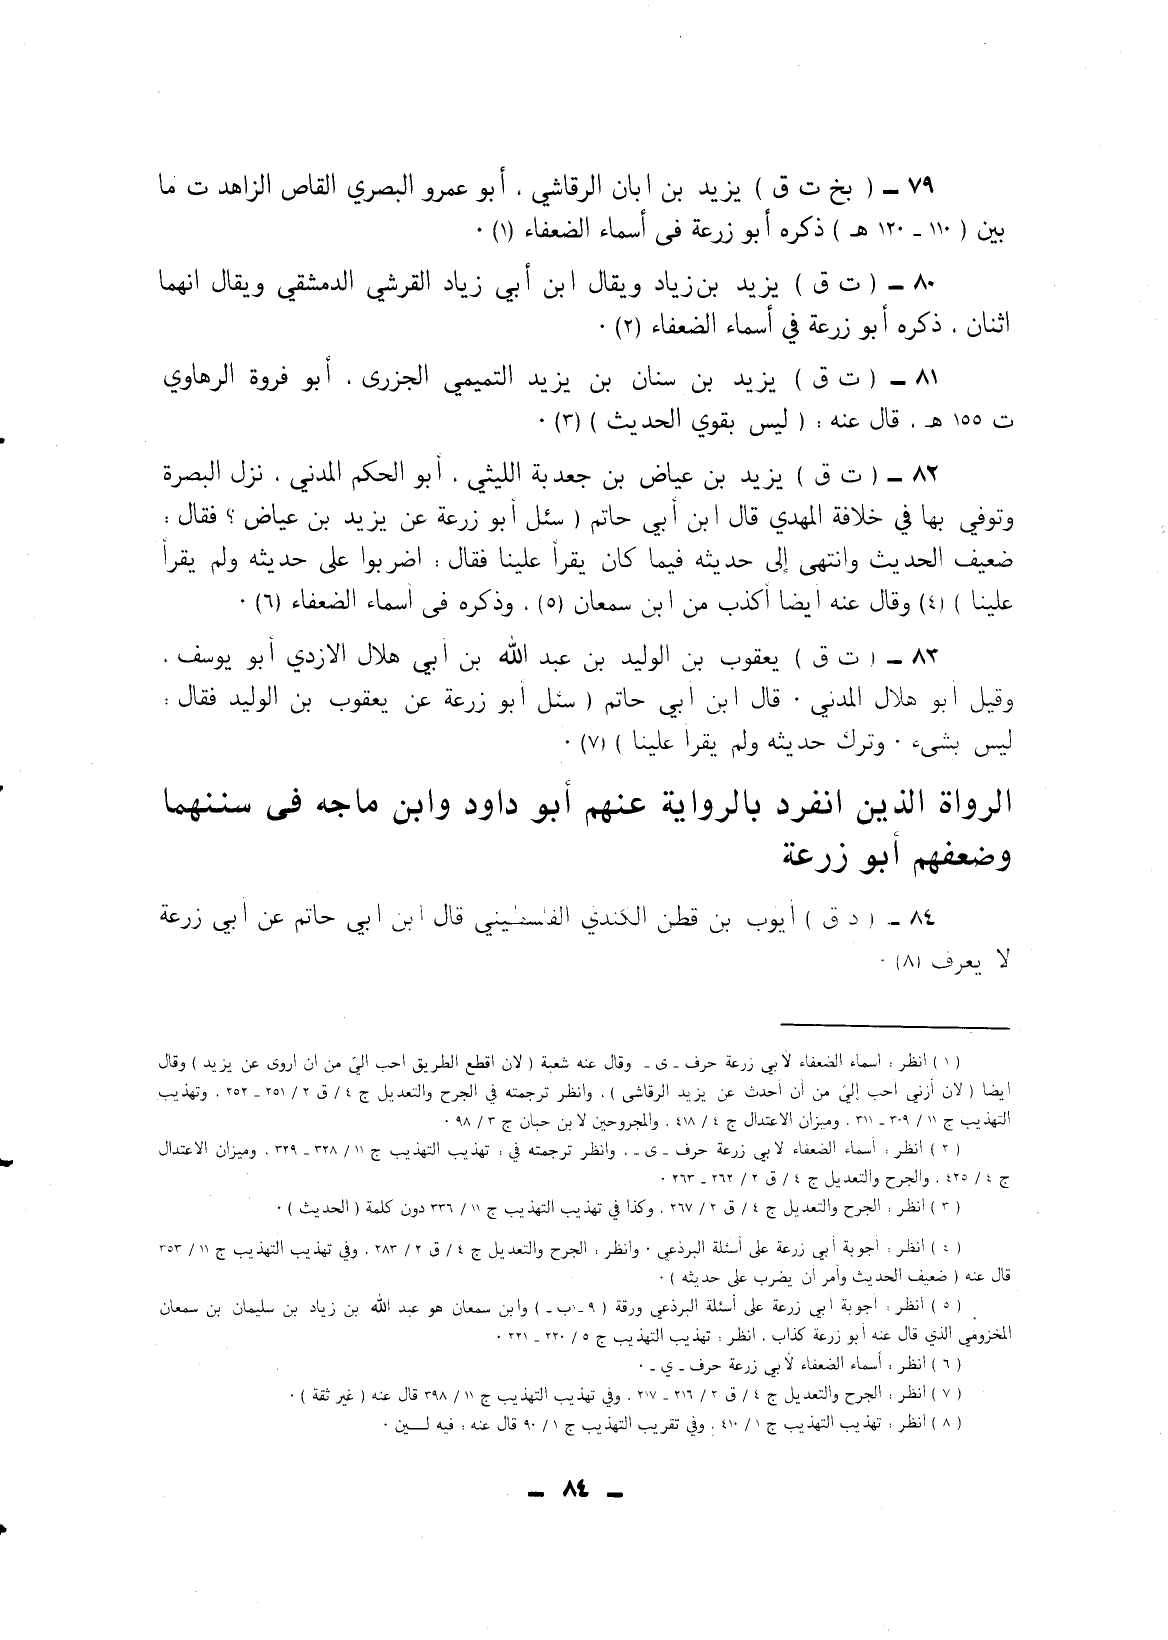 ٧٩ ــ ( بخ ت ق ) يزيد بن ابان الرقاشي ، أبو عمرو البصري القاص الزاهد ت ما
بين ( ١١٠ ـ ١٢٠ هـ ) ذكره أبو زرعة فى أسماء الضعفاء (١) ٠
٨٠ ــ ( ت ق ) يزيد بن زياد ويقال ابن أبي زياد القرشي الدمشقي ويقال انهما
اثنان ، ذكره أبو زرعة في أسماء الضعفاء (٢) ٠
٨١ ــ ( ت ق ) يزيد بن سنان بن يزيد التميمي الجزرى ، أبو فروة الرهاوي
ت ١٥٥ هـ ، قال عنه : ( ليس بقوي الحديث ) (٣) ٠
٨٢ ــ ( ت ق ) يزيد بن عياض بن جعدبة الليثي ، أبو الحكم المدني ، نزل البصرة
وتوفي بها في خلافة المهدي قال ابن أبي حاتم ( سئل أبو زرعة عن يزيد بن عياض ؟ فقال :
ضعيف الحديث وانتهى إلى حديثه فيما كان يقرأ علينا فقال : اضربوا على حديثه ولم يقرأ
علينا ) (٤) وقال عنه أيضا أكذب من ابن سمعان (٥) ، وذكره فى أسماء الضعفاء (٦) ٠
٨٣ ــ ( ت ق ) يعقوب بن الوليد بن عبد الله بن أبي هلال الازدي أبو يوسف ،
وقيل أبو هلال المدني ٠ قال ابن أبي حاتم ( سئل أبو زرعة عن يعقوب بن الوليد فقال :
ليس بشىء ٠ وترك حديثه ولم يقرأ علينا ) (٧) ٠
الرواة الذين انفرد بالرواية عنهم أبو داود وابن ماجه فى سننهما
وضعفهم أبو زرعة
٨٤ ــ ( د ق ) أيوب بن قطن الكندي الفلسطيني قال ابن أبي حاتم عن أبي زرعة
لا يعرف (٨) ٠
( ١ ) انظر : أسماء الضعفاء لأبي زرعة حرف ـ ي ـ وقال عنه شعبة ( لان اقطع الطريق احب اليّ من ان اروى عن يزيد ) وقال
ايضا ( لان أزني احب إليّ من أن أحدث عن يزيد الرقاشى ) ، وانظر ترجمته في الجرح والتعديل ج ٤ / ق ٢ / ٢٥١ ـ ٢٥٢ ، وتهذيب
التهذيب ج ١١ / ٣٠٩ ـ ٣١١ ، وميزان الاعتدال ج ٤ / ٤١٨ ، والمجروحين لابن حبان ج ٣ / ٩٨ ٠
( ٢ ) انظر : أسماء الضعفاء لأبي زرعة حرف ـ ي ـ ، وانظر ترجمته في : تهذيب التهذيب ج ١١ / ٣٢٨ ـ ٣٢٩ ، وميزان الاعتدال
ج ٤ / ٤٢٥ ، والجرح والتعديل ج ٤ / ق ٢ / ٢٦٢ ـ ٢٦٣ ٠
( ٣ ) انظر : الجرح والتعديل ج ٤ / ق ٢ / ٢٦٧ ، وكذا في تهذيب التهذيب ج ١١ / ٣٣٦ دون كلمة ( الحديث ) ٠
( ٤ ) انظر : أجوبة أبي زرعة على أسئلة البرذعي ٠ وانظر : الجرح والتعديل ج ٤ / ق ٢ / ٢٨٣ ، وفي تهذيب التهذيب ج ١١ / ٣٥٣
قال عنه ( ضعيف الحديث وأمر أن يضرب على حديثه ) ٠
( ٥ ) انظر : أجوبة أبي زرعة على أسئلة البرذعي ورقة ( ٩ ـ ١ب ـ ) وابن سمعان هو عبد الله بن زياد بن سليمان بن سمعان
المخزومي الذي قال عنه أبو زرعة كذاب ، انظر : تهذيب التهذيب ج ٥ / ٢٢٠ ـ ٢٢١ ٠
( ٦ ) انظر : أسماء الضعفاء لأبي زرعة حرف ـ ي ـ ٠
( ٧ ) انظر : الجرح والتعديل ج ٤ / ق ٢ / ٢١٦ ـ ٢١٧ ، وفي تهذيب التهذيب ج ١١ / ٣٩٨ قال عنه ( غير ثقة ) ٠
( ٨ ) انظر : تهذيب التهذيب ج ١ / ٤١٠ ، وفي تقريب التهذيب ج ١ / ٩٠ قال عنه : فيه لـــين ٠
ــ ٨٤ ــ